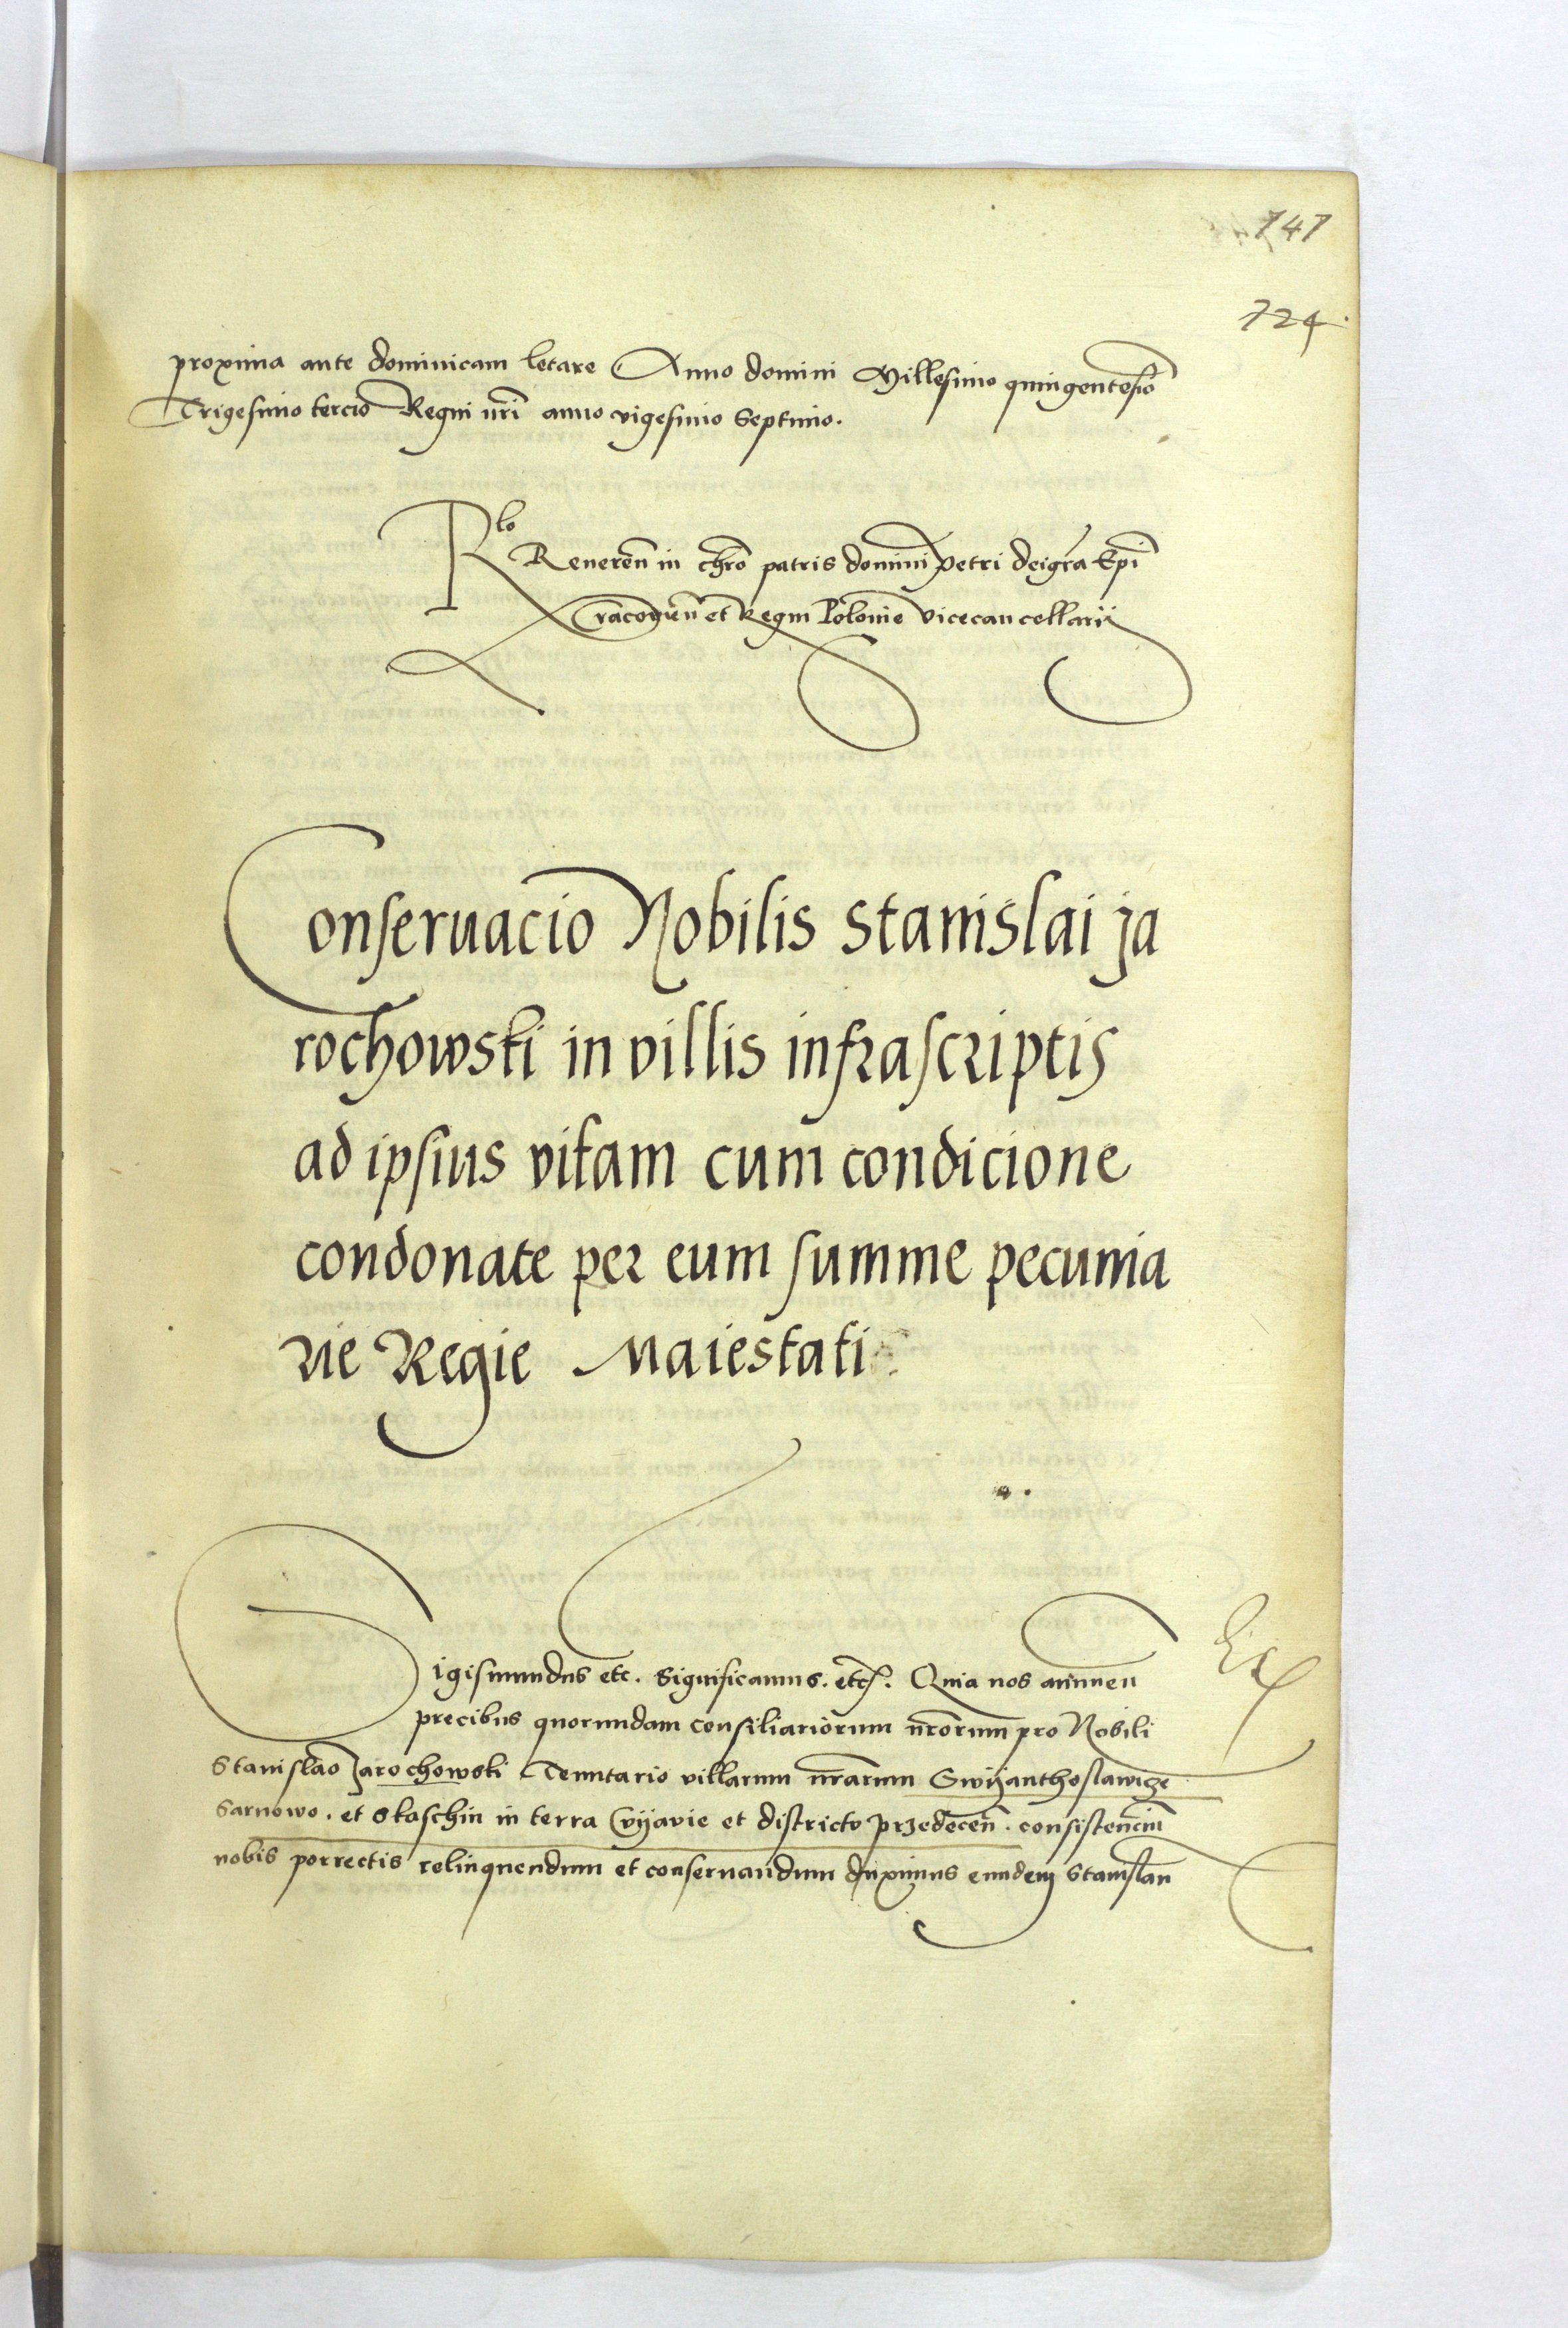 747
724.
proxima ante dominicam letare Anno domini Millesimo quingentesi͞o
Trigesimo tercio Regni nr͞i anno vigesimo Septimo.
Rlo Reveren͞ in chr͞o patris domini Petri dei gr͞a Ep͞i
Cracovien͞ et Regni Polonie vicecancellarij
Conseruacio Nobilis Stanislai Ja
rochowski in villis infrascriptis
ad ipsius vitam cum condicione
condonate per eum summe pecunia
rie Regie Maiestati
Sigismundus etc. Significamus. etc. Quia nos annuen
precibus quorundam consiliariorum nr͞orum pro Nobili
Stanislao Jarochowski Tenutario villarum nr͞arum Swyanthoslawicze
Sarnowo. et Skaschin in terra Cuyavie et districtu przedecen͞. consistencium͞
nobis porrectis relinquendum et conservandum duximus eundem Stanislau͞